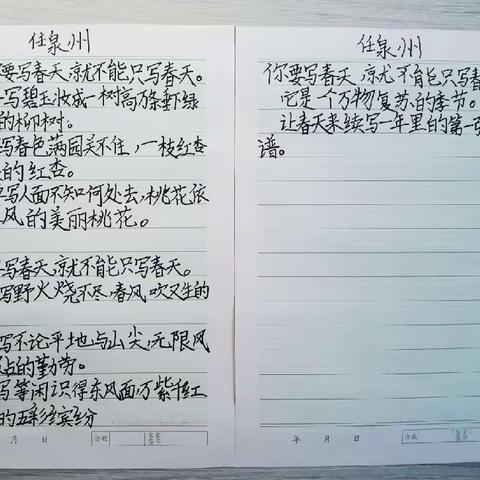 任泉州
要写春天,凉尤不能只写春天。
写碧玉妆成一树高万条垂绿
的柳树。
写春色满园关不住,一枝红杏
的红杏。
写人面不知何处去,桃花依
风的美丽桃花。
写春天,凉尤不能只写春天。
写野火烧不尽,春风吹又生的
写不论平地与山尖,无限风
占的勤劳。
写等闲识得东风面,万紫千红
的五彩缤纷
月 日
任泉州
你要写春天,凉尤不能只写春
它是一个万物复苏的季节。
让春天来续写一年里的第一
谱。
年 月 日